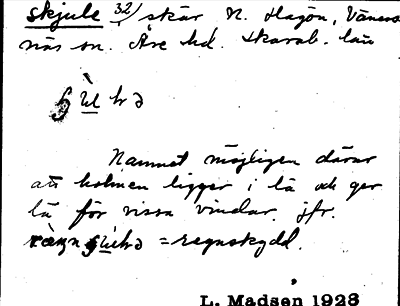 skjule 32/ skär N. Hagön, Väners
näs sn. Åse hd. Skarab. län
Namnet möjligen därav
att holmen ligger i lä och ger
lä för vissa vindar. jfr.
= regnskydd.
L. Madsen 1923